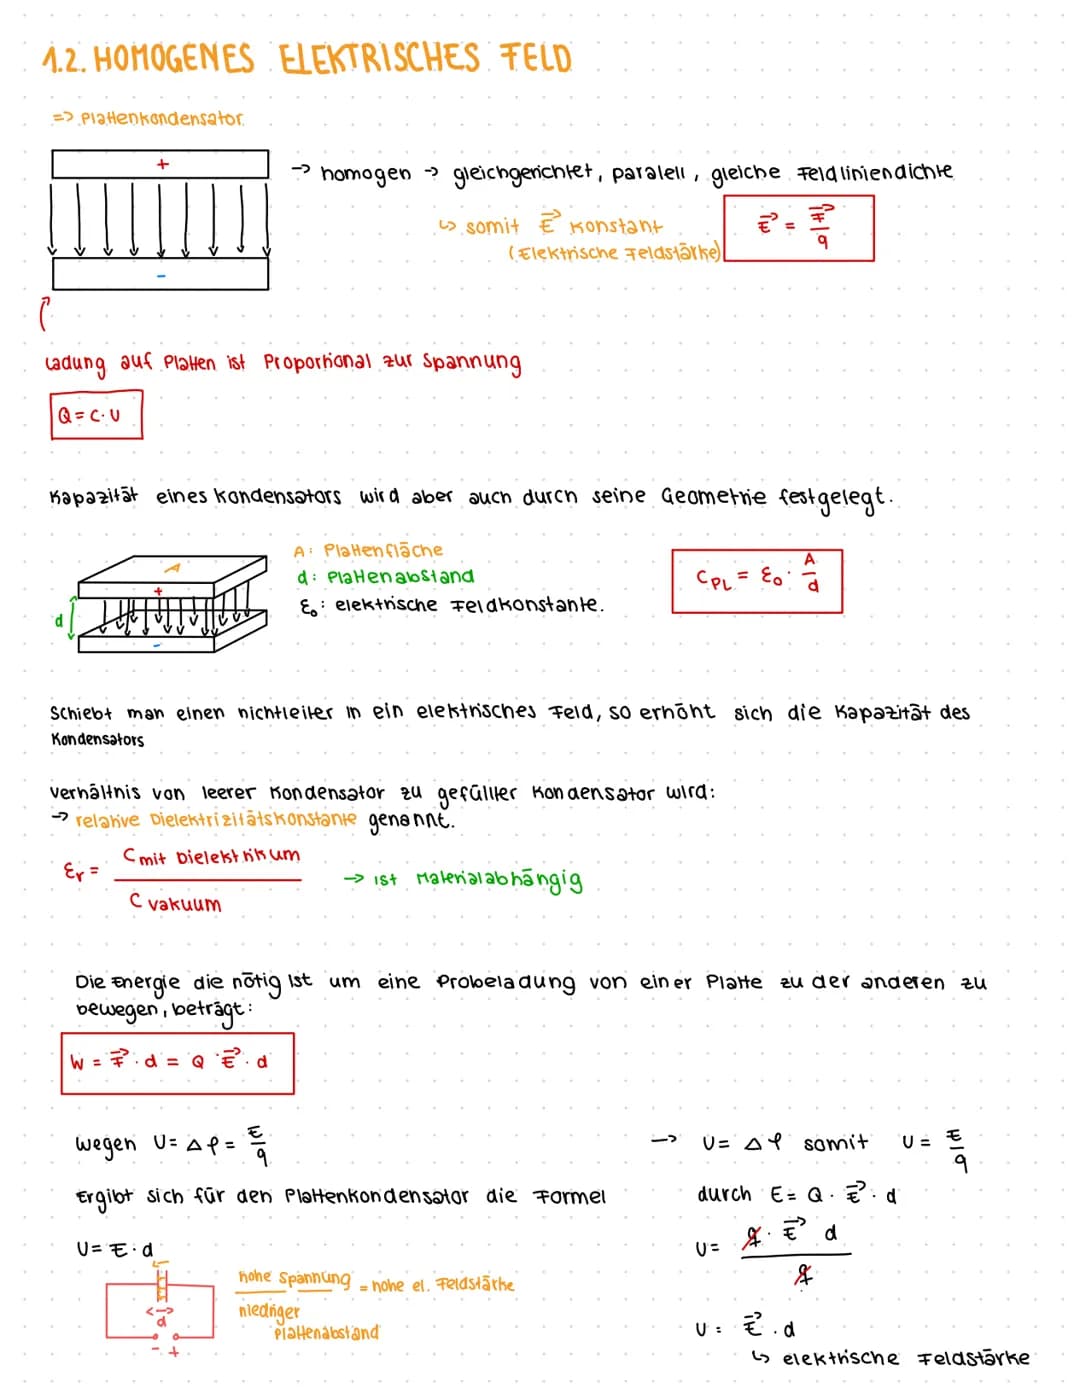 1.2. HOMOGENES ELEKTRISCHES FELD
=> Plattenkondensator
+
-> homogen -> gleichgerichtet, paralell, gleiche Feldliniendichte
↳ somit E⃗ konstant
(Elektrische Feldstärke)
E⃗ = F⃗/q
-
Ladung auf Platten ist Proportional zur Spannung
Q = C · U
Kapazität eines Kondensators wird aber auch durch seine Geometrie festgelegt.
A
+
d
-
A: Plattenfläche
d: Plattenabstand
ε₀: elektrische Feldkonstante.
C_PL = ε₀ · A/d
Schiebt man einen nichtleiter in ein elektrisches Feld, so erhöht sich die Kapazität des
Kondensators
Verhältnis von leerer Kondensator zu gefüllter Kondensator wird:
-> relative Dielektrizitätskonstante genannt.
εr = C mit Dielektrikum / C vakuum
-> ist Materialabhängig
Die Energie die nötig ist um eine Probeladung von einer Platte zu der anderen zu
bewegen, beträgt:
W = F⃗ · d = Q · E⃗ · d
wegen U = Δφ = E/q
Ergibt sich für den Plattenkondensator die Formel
U = E · d
d
- +
hohe Spannung / niedriger Plattenabstand = hohe el. Feldstärke
-> U = Δφ somit U = E/q
durch E = Q · E⃗ · d
U = q · E⃗ d / q
U = E⃗ · d
↳ elektrische Feldstärke